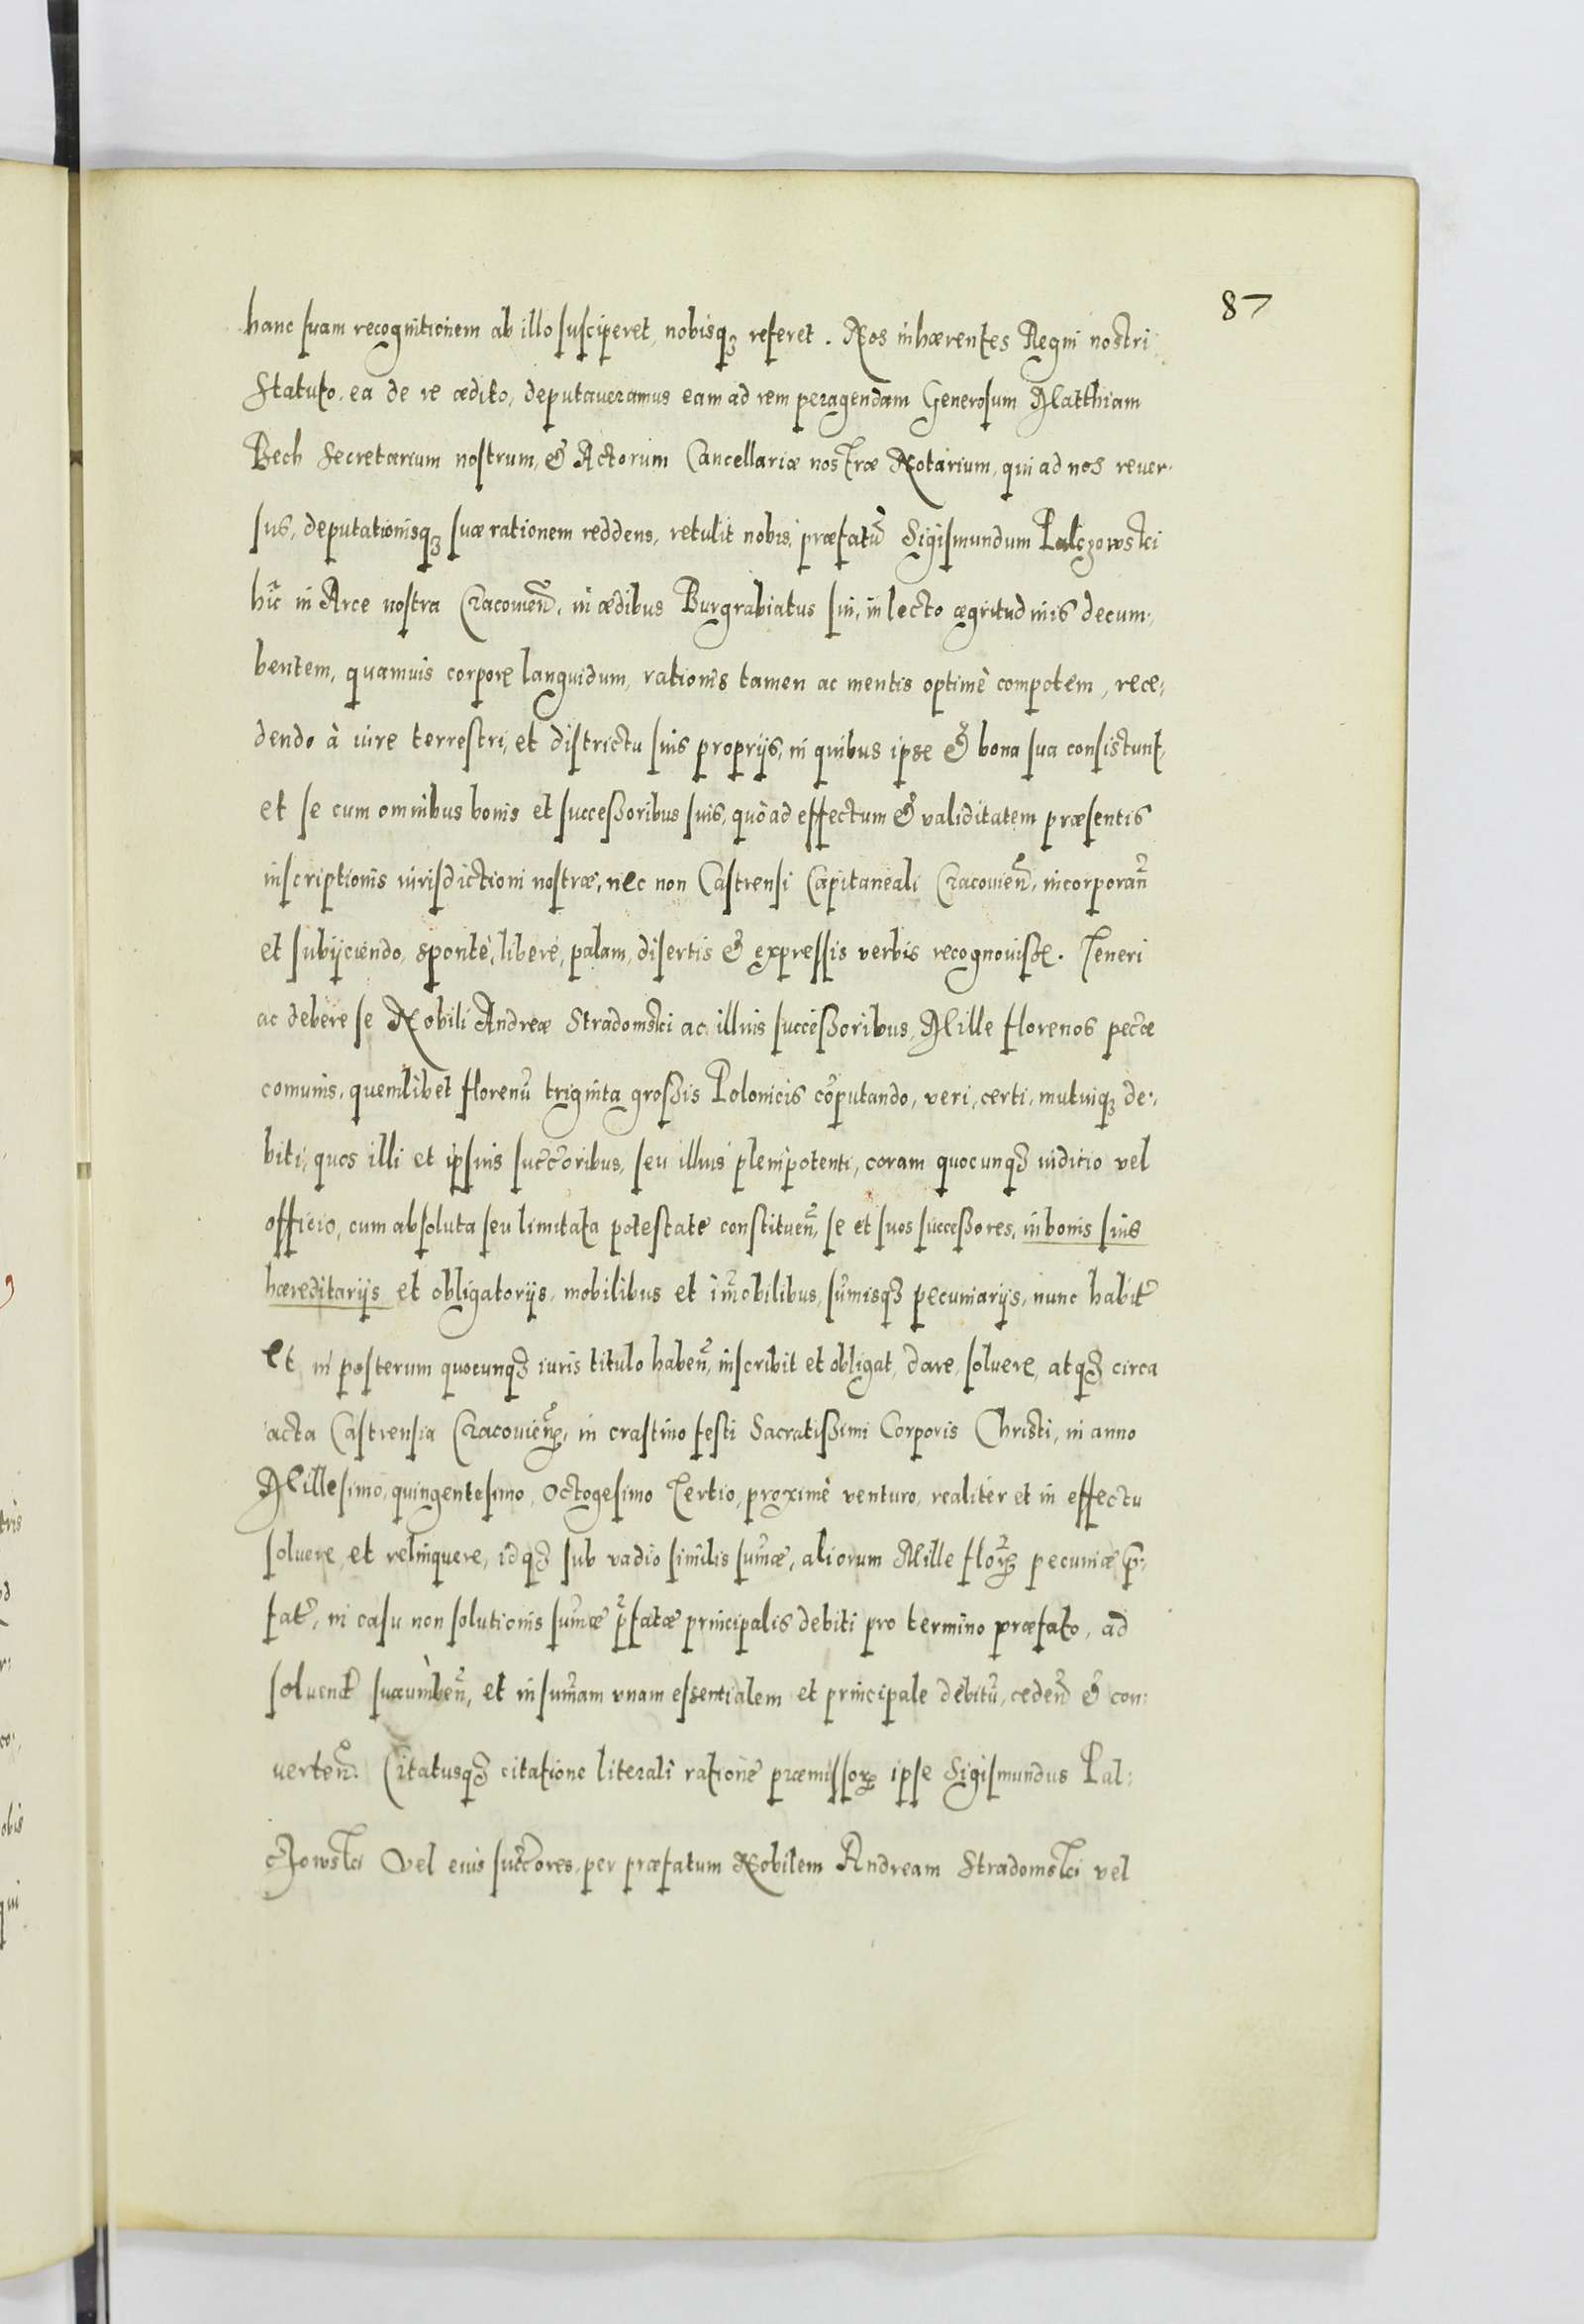 87
hanc suam recognitionem ab illo susciperet, nobisq₃ referet. Nos inhærentes Regni nostri
Statuto, ea de re ædito, deputaveramus eam ad rem peragendam Generosum Matthiam
Bech Secretarium nostrum, & Actorum Cancellariæ nostræ Notarium, qui ad nos rever-
sus, deputationisq₃ suæ rationem reddens, retulit nobis, præfatũ Sigismundum Palczowski
hic in Arce nostra Cracovieñ, in ædibus Burgrabiatus sui, in lecto ægritudinis decum-
bentem, quamvis corpore languidum, rationis tamen ac mentis optimè compotem, rece-
dendo à iure terrestri, et districtu suis proprijs, in quibus ipse & bona sua consistunt,
et se cum omnibus bonis et successoribus suis, quò ad effectum & validitatem præsentis
inscriptionis iurisdictioni nostræ, nec non Castrensi Capitaneali Cracovieñ, incorporañ
et subijciendo, sponte, libere, palam, disertis & expressis verbis recognovisse. Teneri
ac debere se Nobili Andreæ Stradomski ac illius successoribus, Mille florenos pecćæ
comunis, quemlibet florenũ triginta grossis Polonicis cõputando, veri, certi, mutuiq₃ de-
biti, quos illi et ipsius succ̃oribus, seu illius plenipotenti, coram quocunq₃ iuditio vel
officio, cum absoluta seu limitata potestate constitueñ, se et suos successores, in bonis suis
hæreditarijs et obligatorijs, mobilibus et im̃obilibus, sum̃isq₃ pecuniarijs, nunc habit̃
et in posterum quocunq₃ iuris titulo habeñ, inscribit et obligat, dare, solvere, atq₃ circa
acta Castrensia Cracovieñ, in crastino festi Sacratissimi Corporis Christi, in anno
Millesimo, quingentesimo, Octogesimo Tertio, proximè venturo, realiter et in effectu
solvere, et relinquere, idq₃ sub vadio similis sum̃æ, aliorum Mille floꝝ pecuniæ p̃-
fat̃, in casu non solutionis sum̃æ p̃fatæ principalis debiti pro termino præfato, ad
solvend̃ succumbeñ, et in sum̃am unam essentialem et principale debitũ, cedeñ & con-
verteñ. Citatusq₃ citatione literali ratione præmissoꝝ ipse Sigismundus Pal-
czowski vel eius succ̃ores, per præfatum Nobilem Andream Stradomski vel